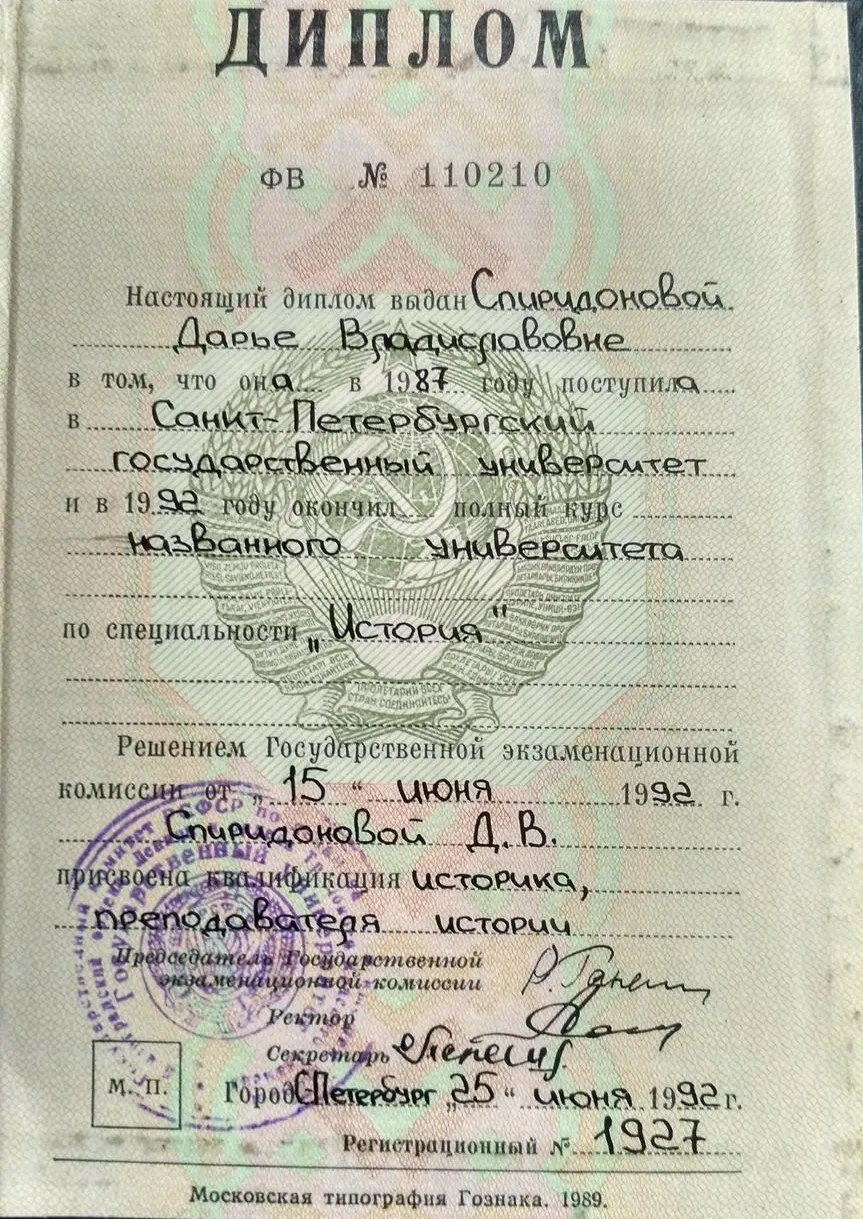 ДИПЛОМ
ФВ № 110210
Настоящий диплом выдан Спиридоновой
Дарье Владиславовне
в том, что она в 1987 году поступила
в Санкт-Петербургский
государственный университет
и в 1992 году окончил полный курс
названного университета
по специальности „История"
Решением Государственной экзаменационной
комиссии от „15“ июня 1992 г.
Спиридоновой Д.В.
присвоена квалификация историка,
преподавателя истории
Председатель Государственной
экзаменационной комиссии
Ректор
Секретарь
М. П. Город С-Петербург „25“ июня 1992 г.
Регистрационный № 1927
Московская типография Гознака. 1989.
ПРОЛЕТАРИИ ВСЕХ
СТРАН СОЕДИНЯЙТЕСЬ